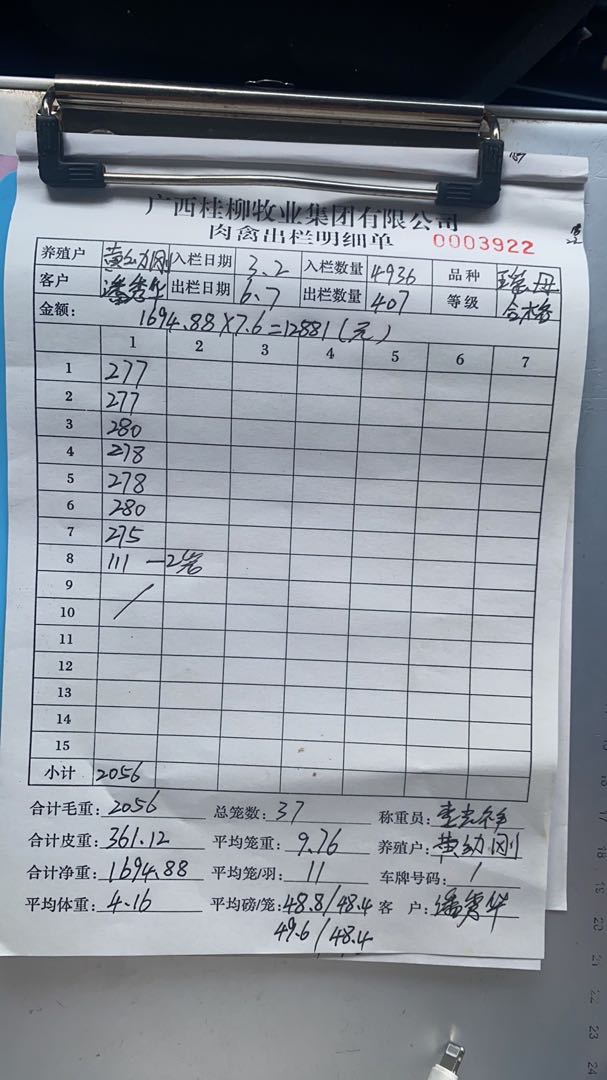 广西桂柳牧业集团有限公司
肉禽出栏明细单 0003922
养殖户 黄幼刚 入栏日期 3.2 入栏数量 4936 品种 瑶母
客户 潘秀华 出栏日期 6.7 出栏数量 407 等级 合格
金额: 1694.88×7.6=12881(元)
1 2 3 4 5 6 7
1 277
2 277
3 280
4 278
5 278
6 280
7 275
8 111 —2笼
9
10
11
12
13
14
15
小计 2056
合计毛重: 2056 总笼数: 37 称重员:
合计皮重: 361.12 平均笼重: 9.76 养殖户: 黄幼刚
合计净重: 1694.88 平均笼/羽: 11 车牌号码: /
平均体重: 4.16 平均磅/笼: 48.8/48.4 客 户: 潘秀华
49.6/48.4
18
19
20
21
22
23
24